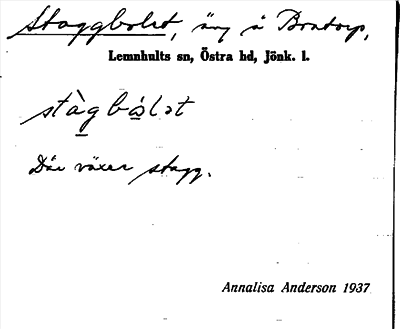 Staggbolet, äng å Brotorp,
Lemnhults sn, Östra hd, Jönk. l.
stàgbólət
Där växer stagg.
Annalisa Anderson 1937